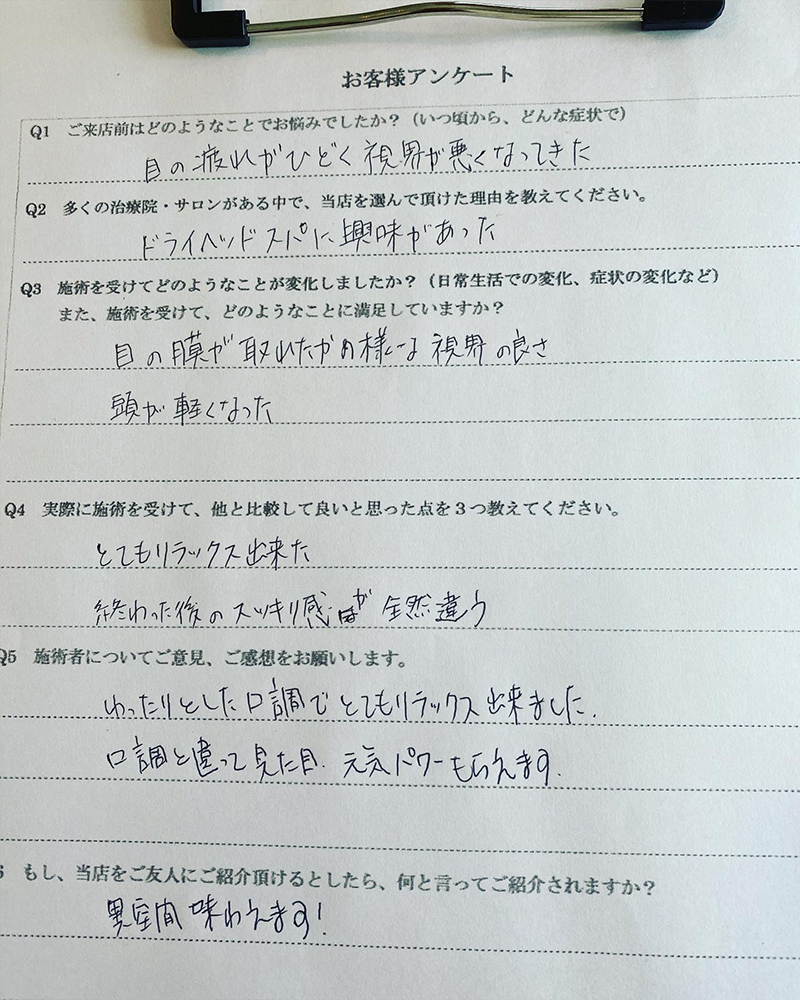 お客様アンケート
Q1 ご来店前はどのようなことでお悩みでしたか？（いつ頃から、どんな症状で）
目の疲れがひどく視界が悪くなってきた
Q2 多くの治療院・サロンがある中で、当店を選んで頂けた理由を教えてください。
ドライヘッドスパに興味があった
Q3 施術を受けてどのようなことが変化しましたか？（日常生活での変化、症状の変化など）
また、施術を受けて、どのようなことに満足していますか？
目の膜が取れたかの様な視界の良さ
頭が軽くなった
Q4 実際に施術を受けて、他と比較して良いと思った点を３つ教えてください。
とてもリラックス出来た
終わった後のスッキリ感が全然違う
Q5 施術者についてご意見、ご感想をお願いします。
ゆったりとした口調でとてもリラックス出来ました.
口調と違って見た目.元気パワーもらえます.
もし、当店をご友人にご紹介頂けるとしたら、何と言ってご紹介されますか？
異空間味わえます!